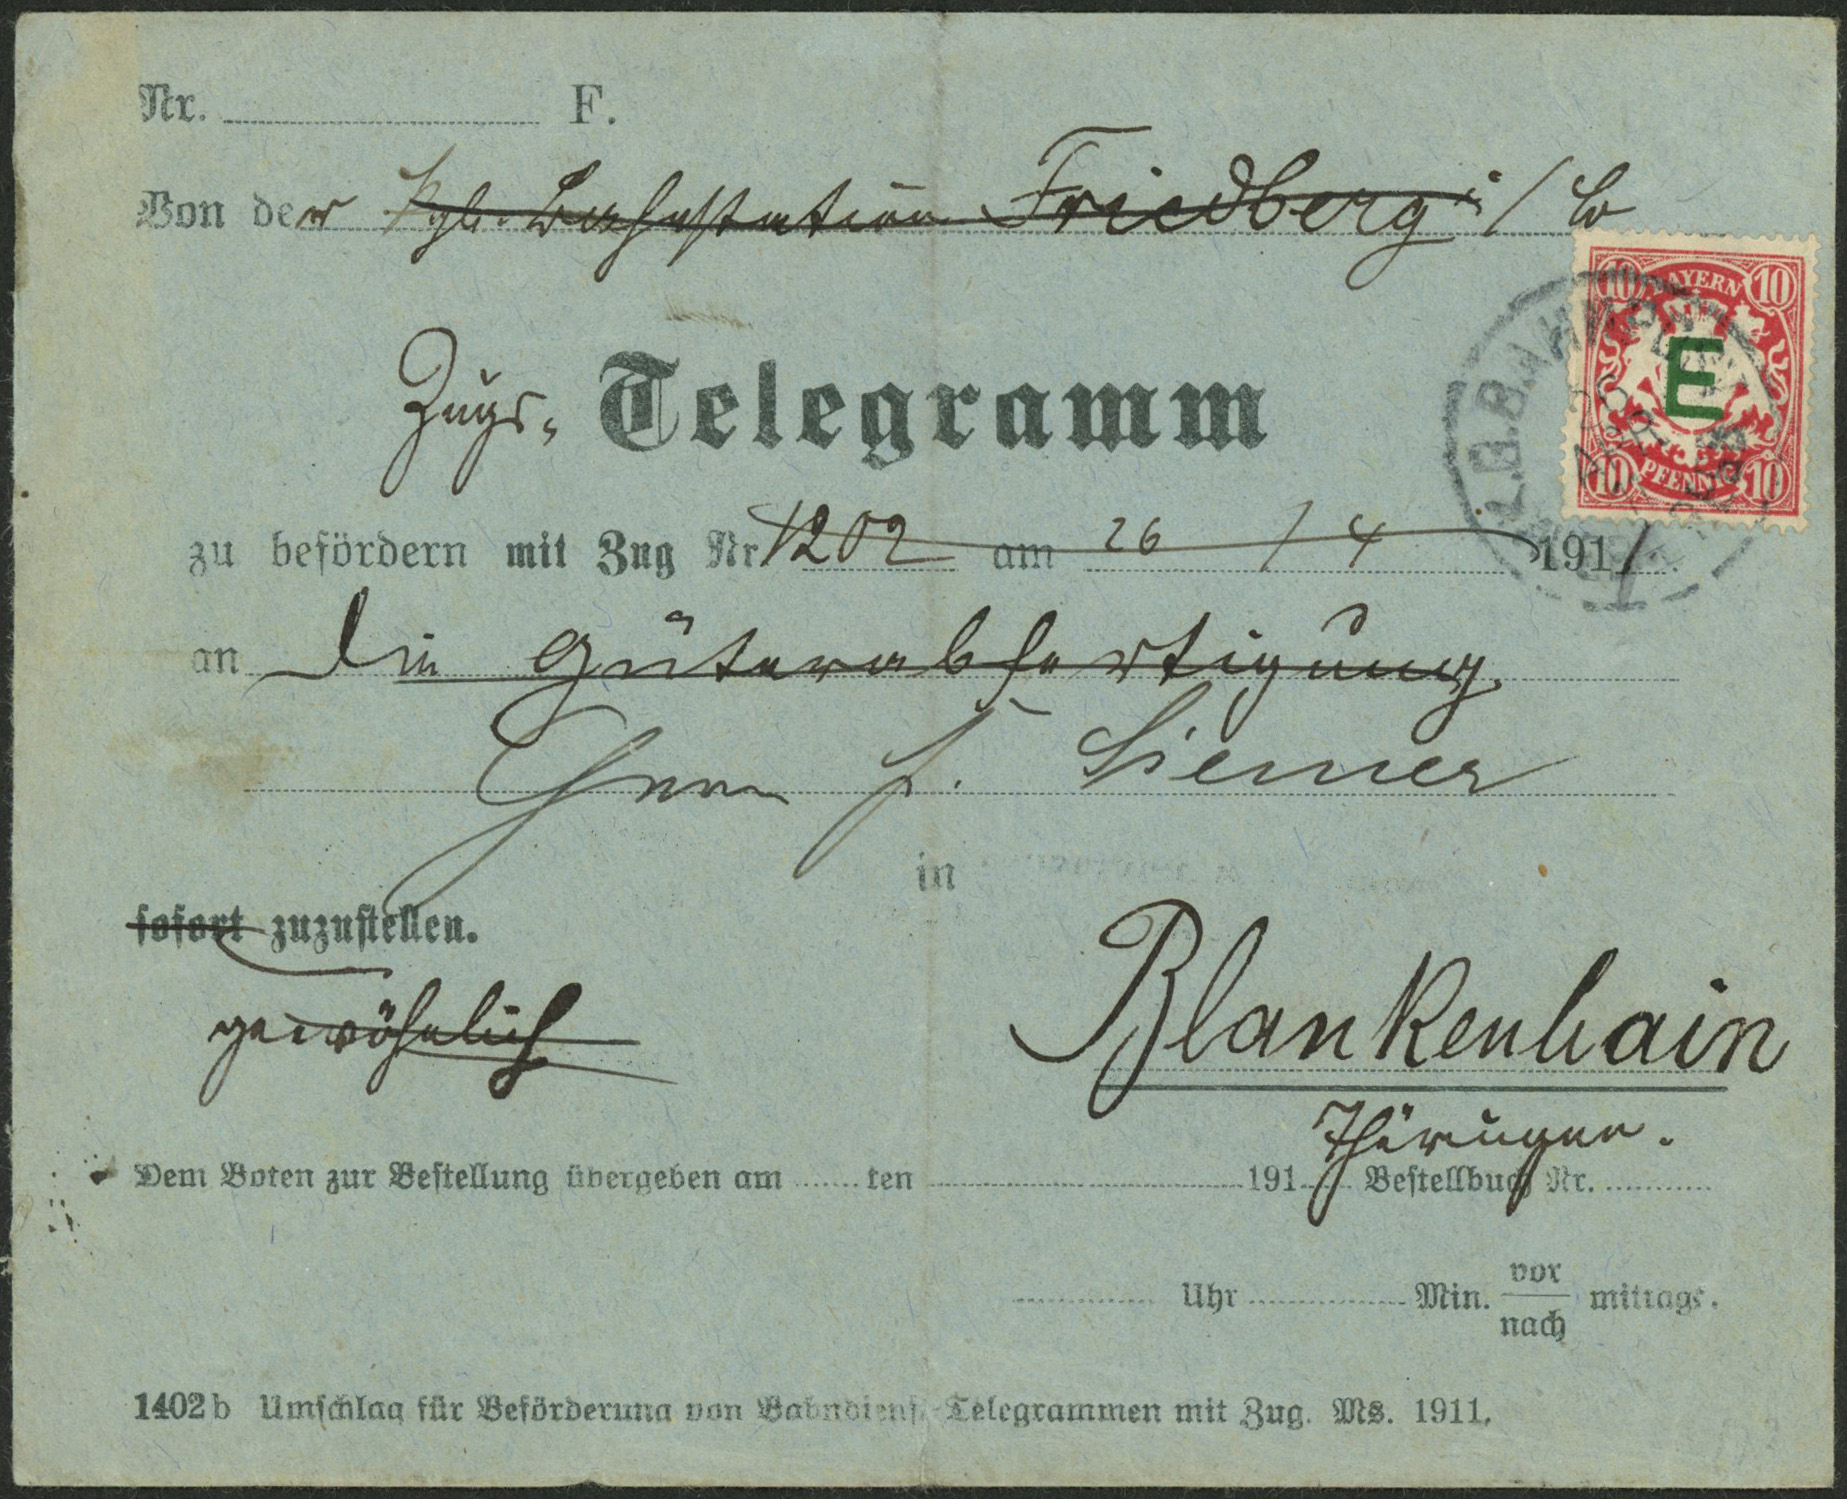 Nr. F.
Von der Kgl. Bahnstation Friedberg i/B
BAYERN
10 10
E
10 PFENNIG 10
K.B.B.
Zugs-Telegramm
zu befördern mit Zug Nr 1202 am 26/4 1911
an die Güterabfertigung
Herrn
in
sofort zuzustellen.
gewöhnlich
Blankenhain
Thüringen.
Dem Boten zur Bestellung übergeben am ten 191 Bestellbuch Nr.
Uhr Min. vor
nach mittags.
1402b Umschlag für Beförderung von Bahndienst-Telegrammen mit Zug. Ms. 1911.